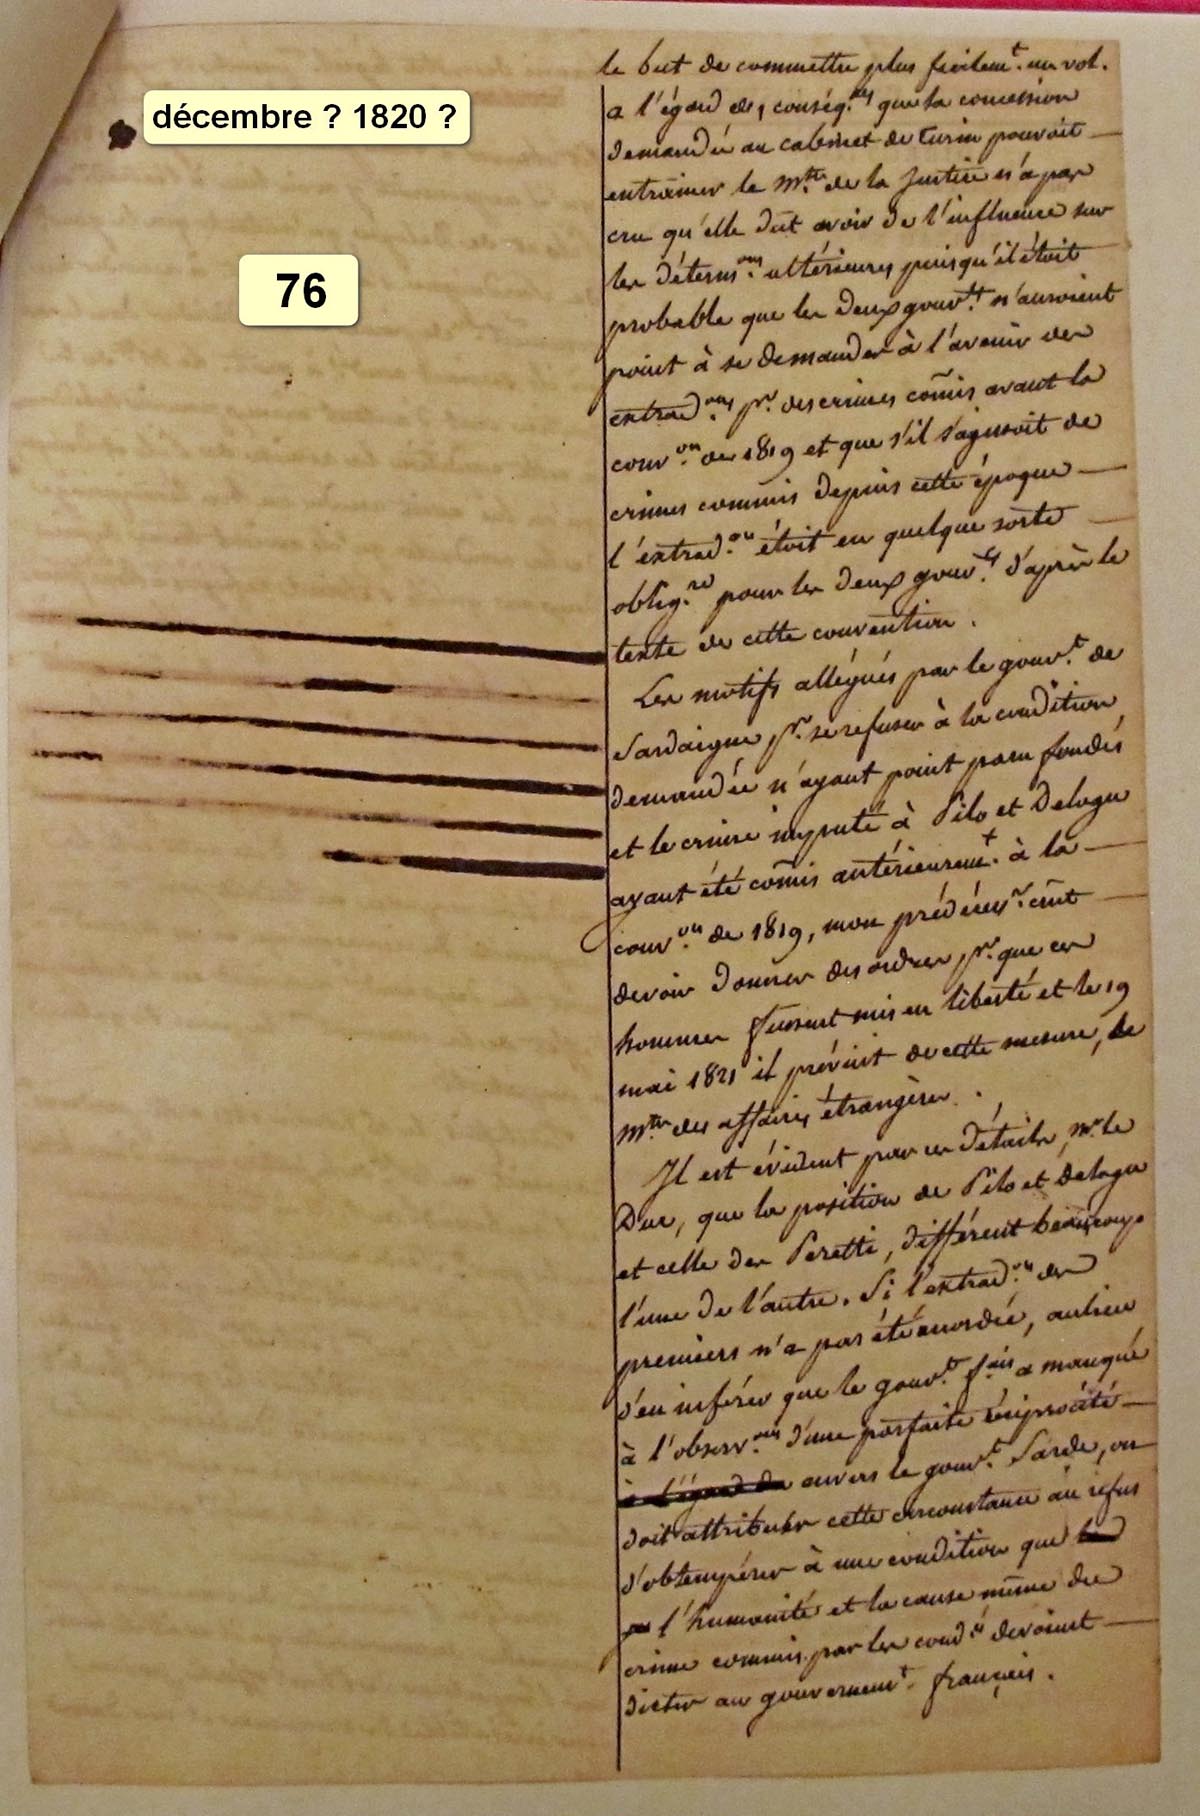 décembre ? 1820 ?
76
le but de commettre plus facilemt. un vol.
a l'égard des conséq.ces que la concession
demandée au cabinet de Turin pouvoit
entrainer le M.tre de la Justice n'a pas
cru qu'elle dut avoir de l'influence sur
les déterm.ons ultérieures puisqu'il étoit
probable que les deux gouv.ts n'auroient
point à se demander à l'avenir des
extrad.ons pr. des crimes com̃is avant la
conv.on de 1819 et que s'il s'agissoit de
crimes commis depuis cette époque
l'extrad.on étoit en quelque sorte
oblig.re pour les deux gouv.ts d'après le
texte de cette convention.
Les motifs allégués par le gouv.t de
Sardaigne pr. se refuser à la condition
demandée n'ayant point paru fondés
et le crime imputé à Pilo et Delogu
ayant été com̃is antérieuremt. à la
conv.on de 1819, mon prédécess.r crut
devoir donner des ordres pr. que ces
hommes fussent mis en liberté et le 19
mai 1821 il prévint de cette mesure, le
M.tre des affaires étrangères.
Il est évident par ces détails, Mr. le
Duc, que la position de Pilo et Delogu
et celle des Peretti, différent beaucoup
l'une de l'autre. Si l'extrad.on des
premiers n'a pas été accordée, au lieu
d'en inférer que le gouv.t f.ais a manqué
à l'observ.on d'une parfaite réciprocité
à l'égard du envers le gouv.t Sarde, on
doit attribuer cette circonstance au refus
d'obtempérer à une condition que
l'humanité et la cause même du
crime commis par les cond.és devoient
dicter au gouvernemt. français.